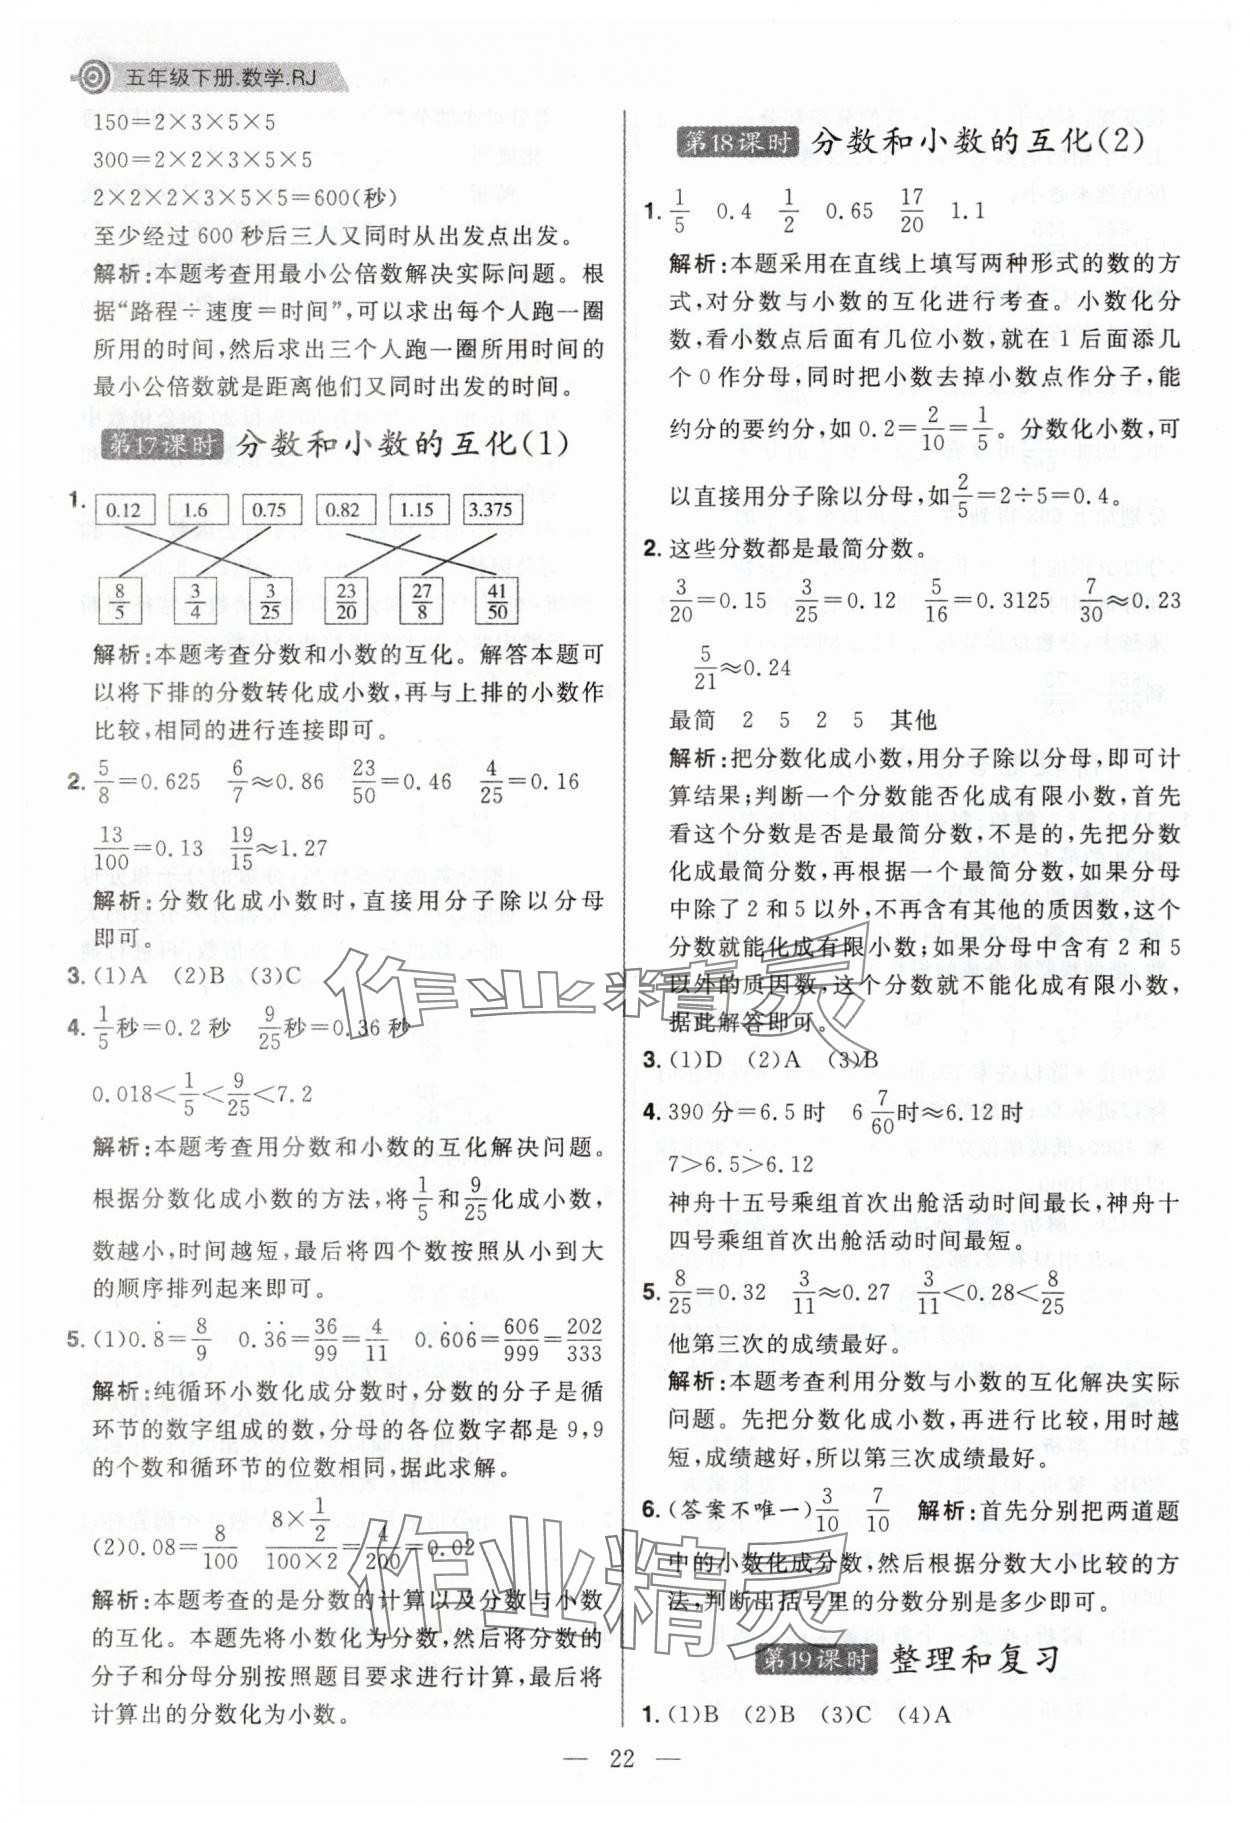 五年级下册.数学.RJ
150=2×3×5×5
300=2×2×3×5×5
2×2×2×3×5×5=600(秒)
至少经过 600 秒后三人又同时从出发点出发。
解析:本题考查用最小公倍数解决实际问题。根
据“路程÷速度=时间”,可以求出每个人跑一圈
所用的时间,然后求出三个人跑一圈所用时间的
最小公倍数就是距离他们又同时出发的时间。
第17课时 分数和小数的互化(1)
1. 0.12 1.6 0.75 0.82 1.15 3.375
8/5 3/4 3/25 23/20 27/8 41/50
解析:本题考查分数和小数的互化。解答本题可
以将下排的分数转化成小数,再与上排的小数作
比较,相同的进行连接即可。
2. 5/8=0.625 6/7≈0.86 23/50=0.46 4/25=0.16
13/100=0.13 19/15≈1.27
解析:分数化成小数时,直接用分子除以分母
即可。
3. (1)A (2)B (3)C
4. 1/5秒=0.2秒 9/25秒=0.36秒
0.018<1/5<9/25<7.2
解析:本题考查用分数和小数的互化解决问题。
根据分数化成小数的方法,将1/5和9/25化成小数,
数越小,时间越短,最后将四个数按照从小到大
的顺序排列起来即可。
5. (1)0.8̇=8/9 0.3̇6̇=36/99=4/11 0.6̇06̇=606/999=202/333
解析:纯循环小数化成分数时,分数的分子是循
环节的数字组成的数,分母的各位数字都是 9,9
的个数和循环节的位数相同,据此求解。
(2)0.08=8/100 8×1/2/100×2=4/200=0.02
解析:本题考查的是分数的计算以及分数与小数
的互化。本题先将小数化为分数,然后将分数的
分子和分母分别按照题目要求进行计算,最后将
计算出的分数化为小数。
第18课时 分数和小数的互化(2)
1. 1/5 0.4 1/2 0.65 17/20 1.1
解析:本题采用在直线上填写两种形式的数的方
式,对分数与小数的互化进行考查。小数化分
数,看小数点后面有几位小数,就在 1 后面添几
个 0 作分母,同时把小数去掉小数点作分子,能
约分的要约分,如 0.2=2/10=1/5。分数化小数,可
以直接用分子除以分母,如2/5=2÷5=0.4。
2. 这些分数都是最简分数。
3/20=0.15 3/25=0.12 5/16=0.3125 7/30≈0.23
5/21≈0.24
最简 2 5 2 5 其他
解析:把分数化成小数,用分子除以分母,即可计
算结果;判断一个分数能否化成有限小数,首先
看这个分数是否是最简分数,不是的,先把分数
化成最简分数,再根据一个最简分数,如果分母
中除了 2 和 5 以外,不再含有其他的质因数,这个
分数就能化成有限小数;如果分母中含有 2 和 5
以外的质因数,这个分数就不能化成有限小数,
据此解答即可。
3. (1)D (2)A (3)B
4. 390 分=6.5 时 6 7/60时≈6.12 时
7>6.5>6.12
神舟十五号乘组首次出舱活动时间最长,神舟十
四号乘组首次出舱活动时间最短。
5. 8/25=0.32 3/11≈0.27 3/11<0.28<8/25
他第三次的成绩最好。
解析:本题考查利用分数与小数的互化解决实际
问题。先把分数化成小数,再进行比较,用时越
短,成绩越好,所以第三次成绩最好。
6. (答案不唯一)3/10 7/10 解析:首先分别把两道题
中的小数化成分数,然后根据分数大小比较的方
法,判断出括号里的分数分别是多少即可。
第19课时 整理和复习
1. (1)B (2)B (3)C (4)A
— 22 —
作业精灵
作业精灵